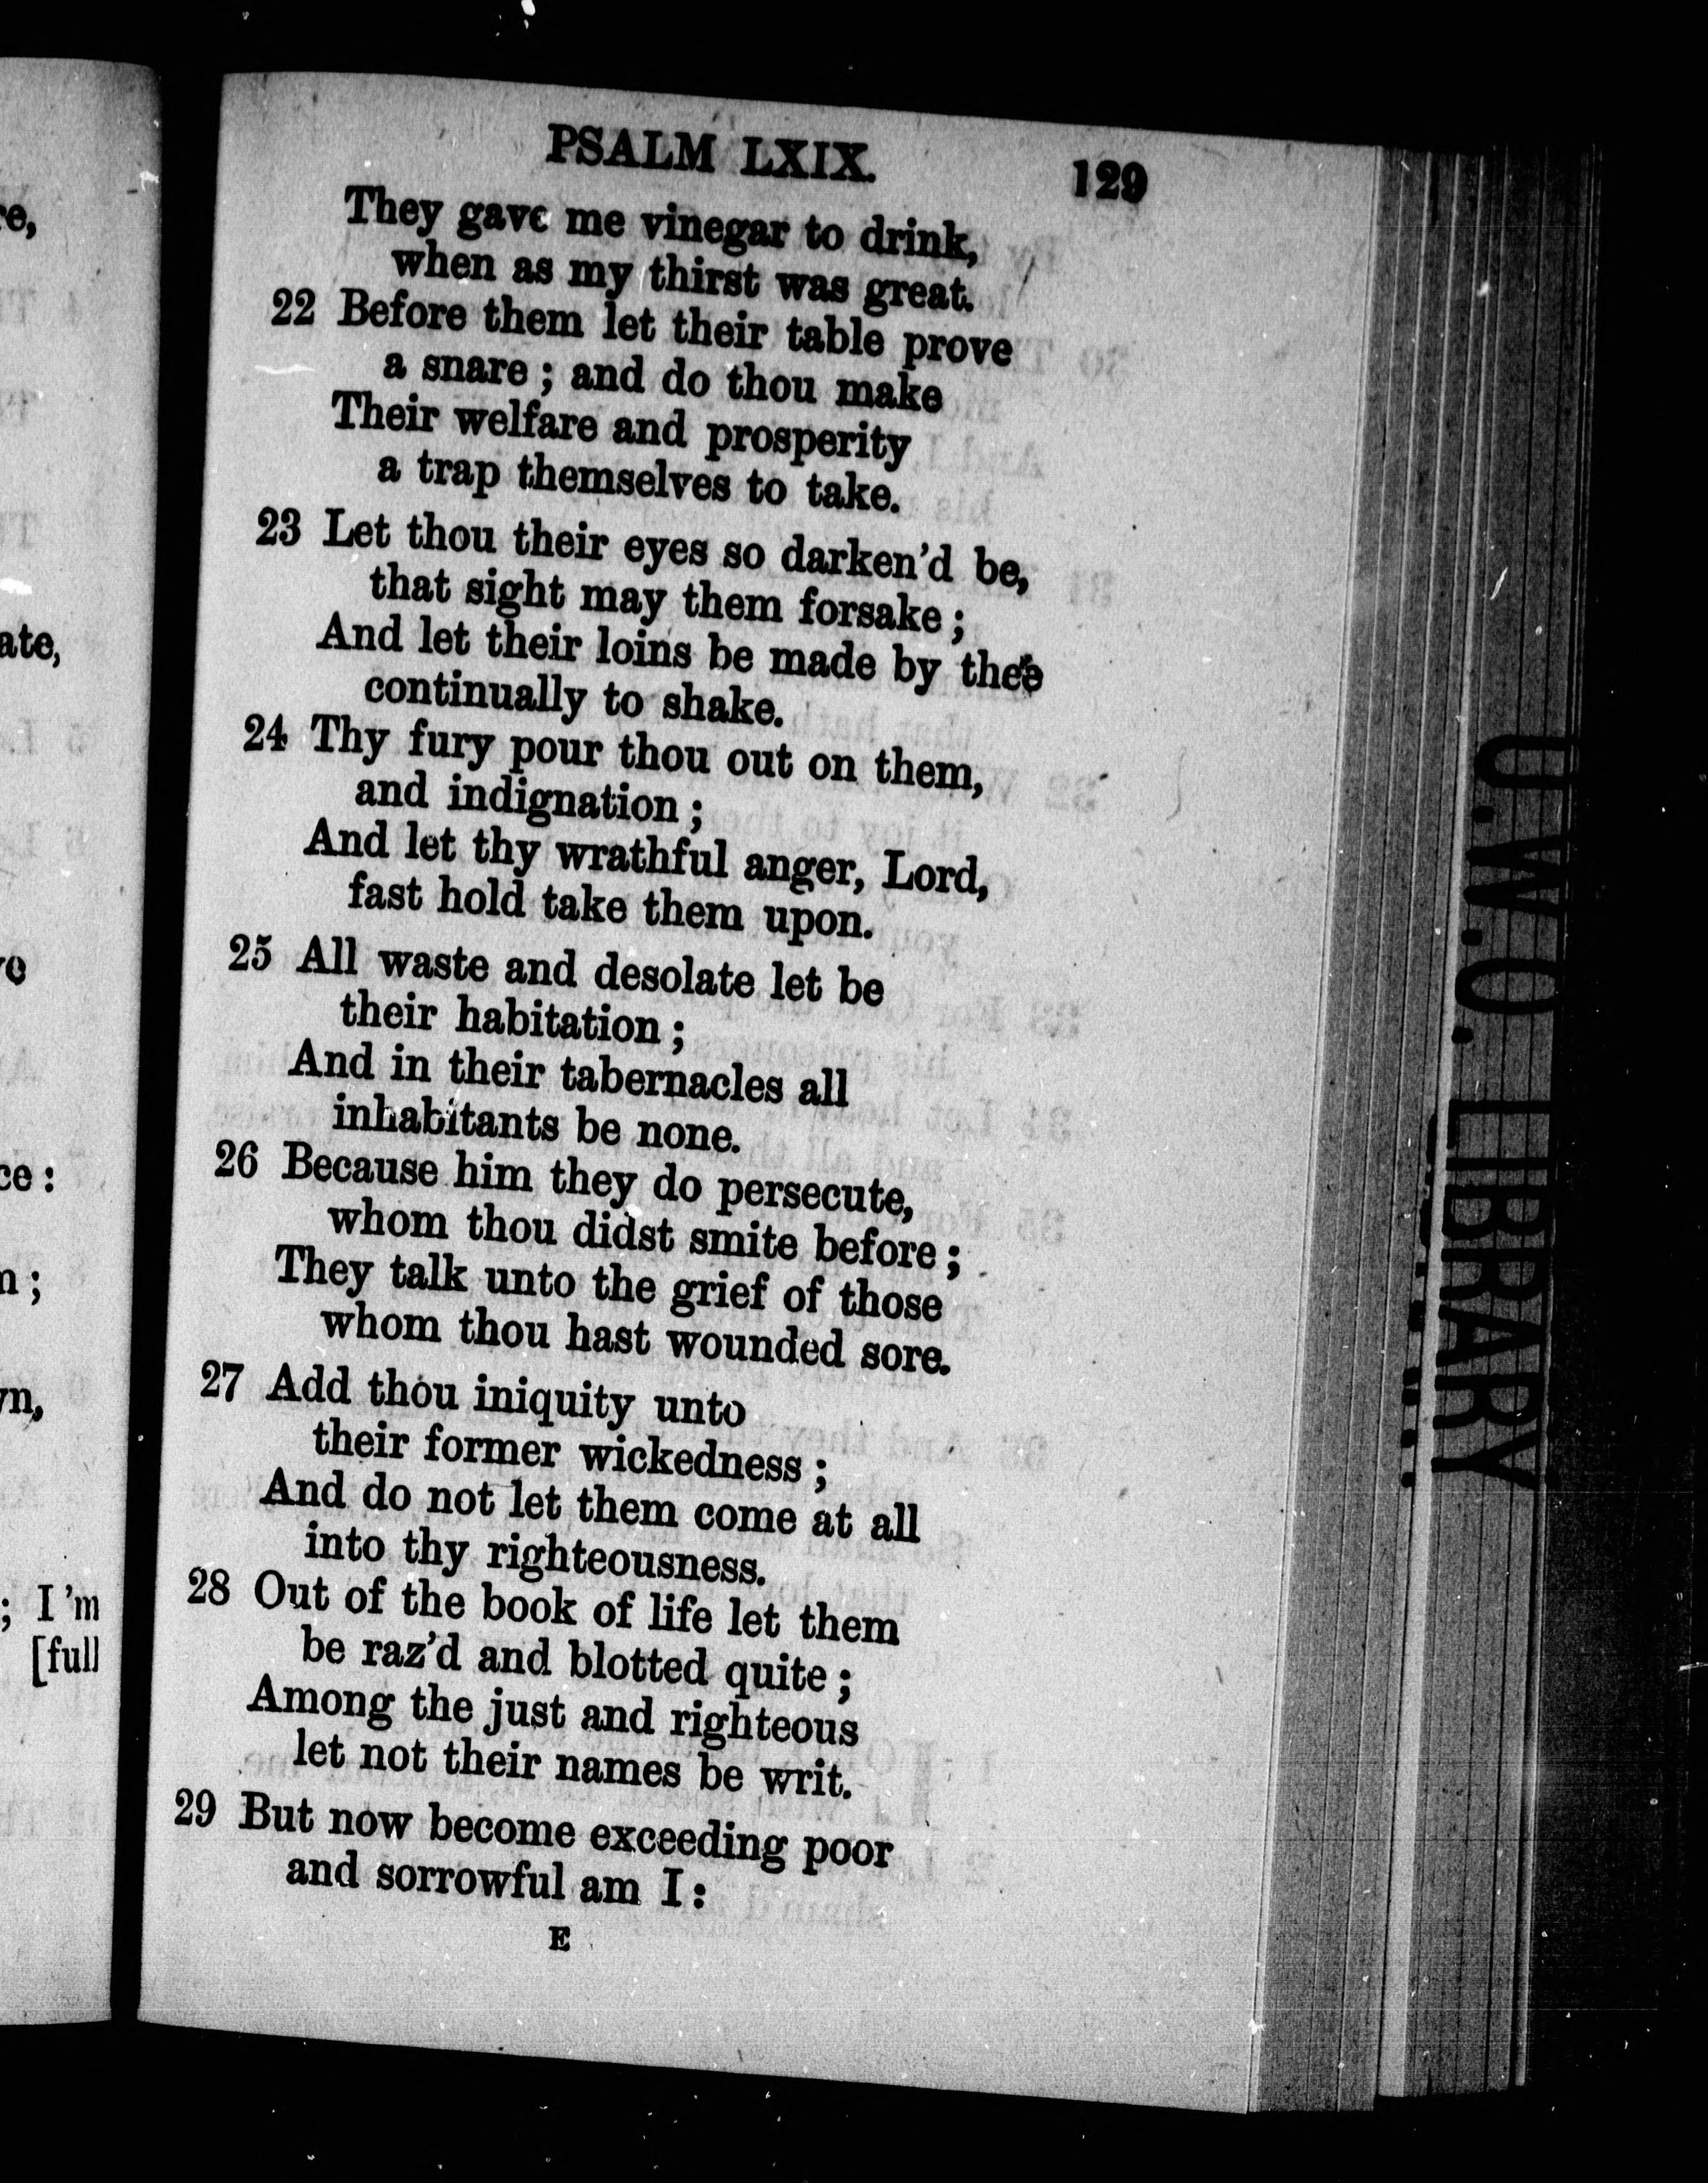 re,
ate,
ce:
n;
vn,
; I'm
[full
PSALM LXIX. 129
They gave me vinegar to drink,
when as my thirst was great.
22 Before them let their table prove
a snare; and do thou make
Their welfare and prosperity
a trap themselves to take.
23 Let thou their eyes so darken'd be,
that sight may them forsake;
And let their loins be made by thee
continually to shake.
24 Thy fury pour thou out on them,
and indignation;
And let thy wrathful anger, Lord,
fast hold take them upon.
25 All waste and desolate let be
their habitation;
And in their tabernacles all
inhabitants be none.
26 Because him they do persecute,
whom thou didst smite before;
They talk unto the grief of those
whom thou hast wounded sore.
27 Add thou iniquity unto
their former wickedness;
And do not let them come at all
into thy righteousness.
28 Out of the book of life let them
be raz'd and blotted quite;
Among the just and righteous
let not their names be writ.
29 But now become exceeding poor
and sorrowful am I:
E
U.W.O. LIBRARY